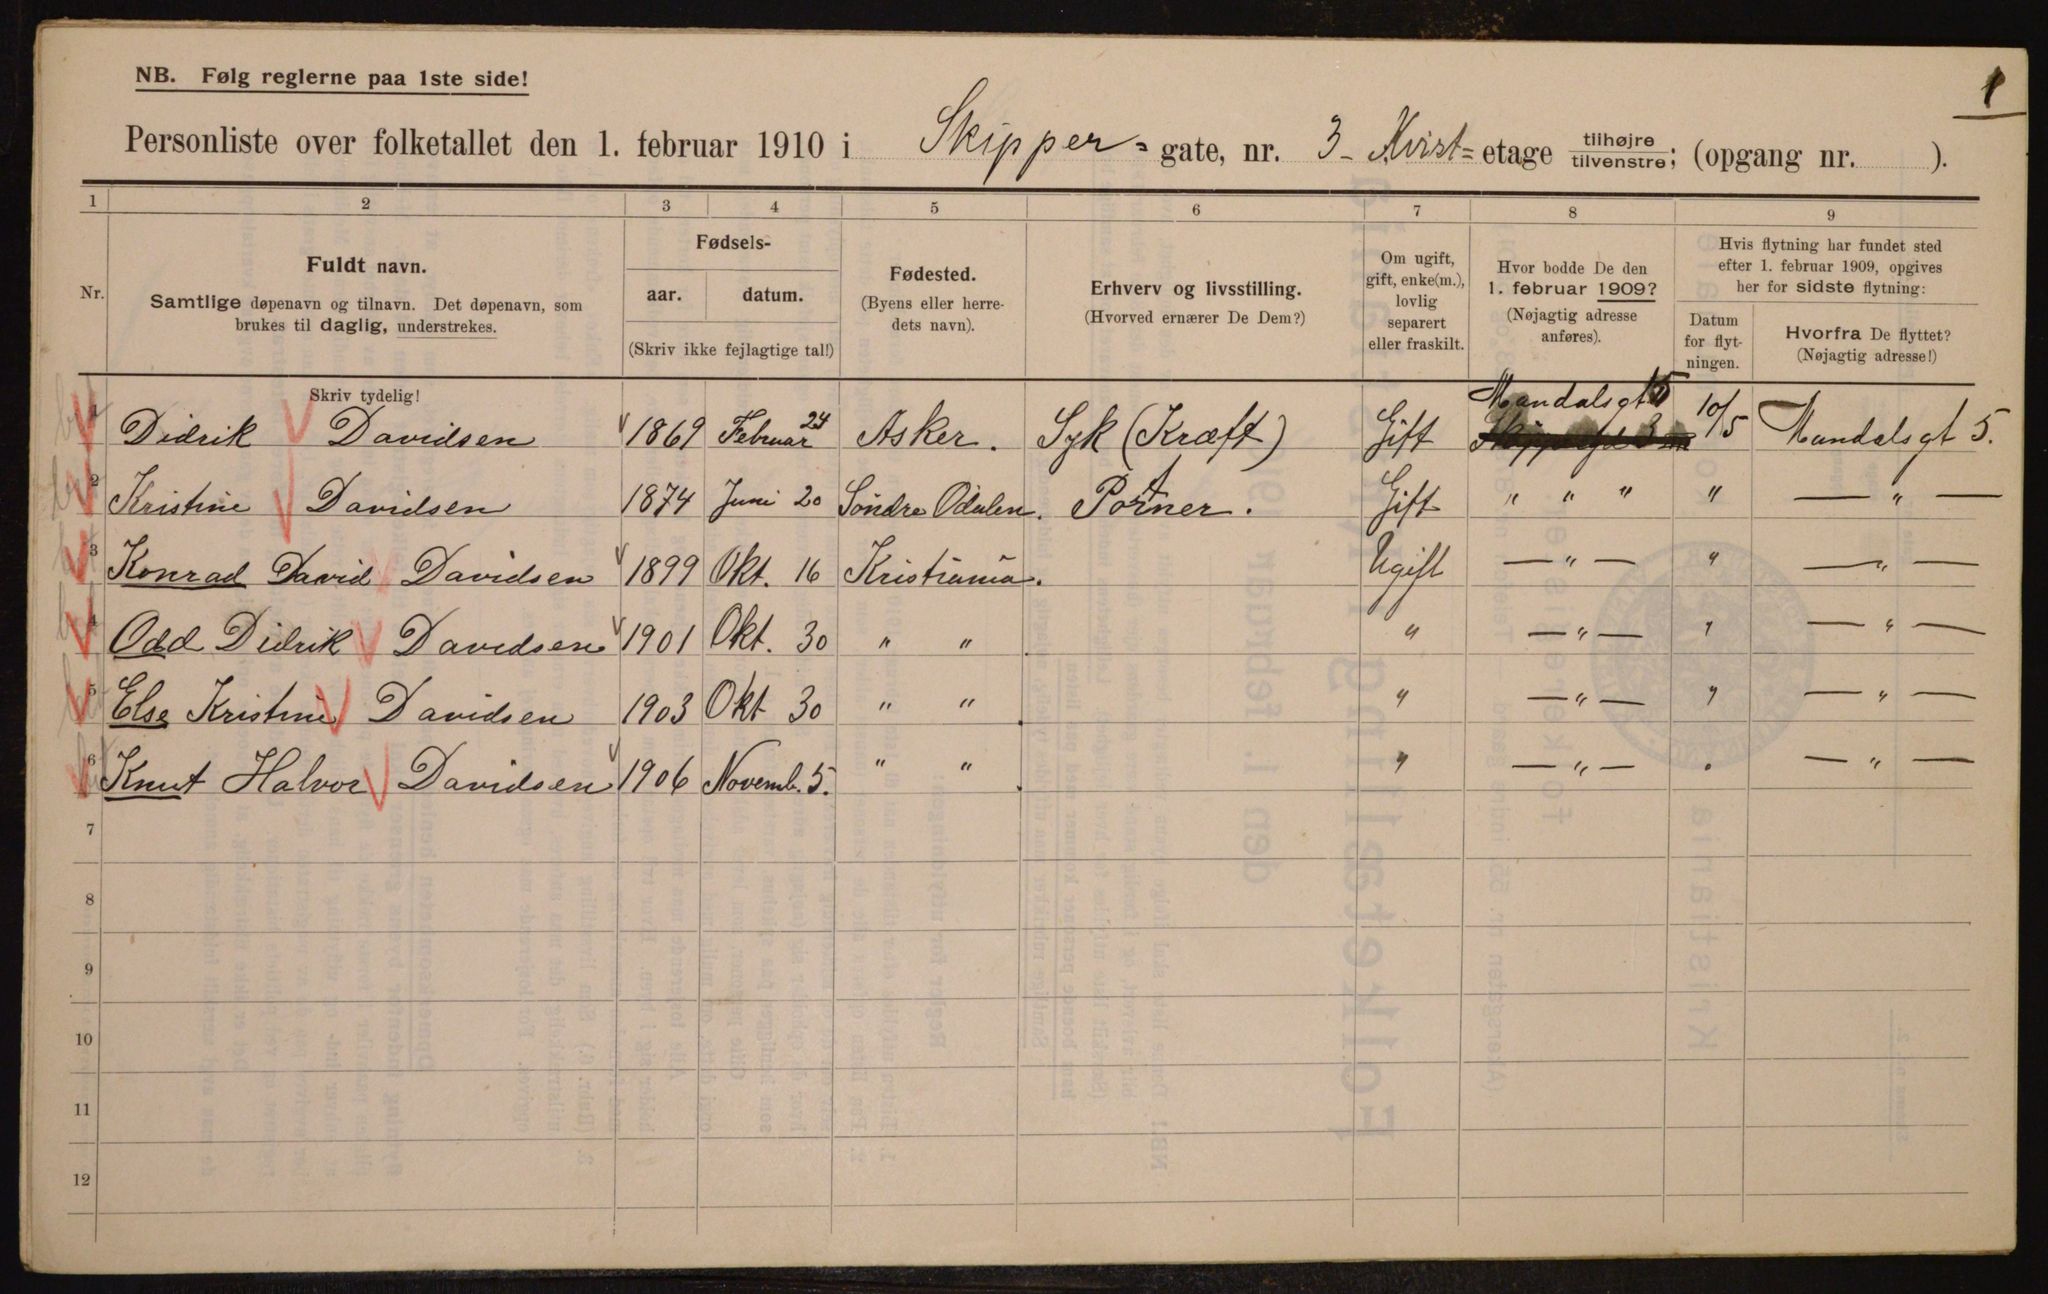 NB. Følg reglerne paa 1ste side!
1
Personliste over folketallet den 1. februar 1910 i Skipper= gate, nr. 3 - Kvist= etage tilhøjre tilvenstre; (opgang nr. ).
1 2 3 4 5 6 7 8 9
Nr.
Fuldt navn.
Samtlige døpenavn og tilnavn. Det døpenavn, som
brukes til daglig, understrekes.
Skriv tydelig!
Fødsels-
aar. datum.
(Skriv ikke fejlagtige tal!)
Fødested.
(Byens eller herre-
dets navn).
Erhverv og livsstilling.
(Hvorved ernærer De Dem?)
Om ugift,
gift, enke(m.),
lovlig
separert
eller fraskilt.
Hvor bodde De den
1. februar 1909?
(Nøjagtig adresse
anføres).
Hvis flytning har fundet sted
efter 1. februar 1909, opgives
her for sidste flytning:
Datum
for flyt-
ningen.
Hvorfra De flyttet?
(Nøjagtig adresse!)
1 Didrik Davidsen 1869 Februar 24 Asker. Syk (Kræft) Gift Mandalsgt 5 10/5 Mandalsgt 5.
2 Kristine Davidsen 1874 Juni 20 Söndre Odalen. Gift " " " " — " —
3 Konrad David Davidsen 1899 Okt. 16 Kristiania. Ugift — " — " — " —
4 Odd Didrik Davidsen 1901 Okt. 30 " " " — " — " — " —
5 Else Kristine Davidsen 1903 Okt 30 " " " — " — " — " —
6 Knut Halvor Davidsen 1906 Novemb. 5. " " " — " — " — " —
7
8
9
10
11
12